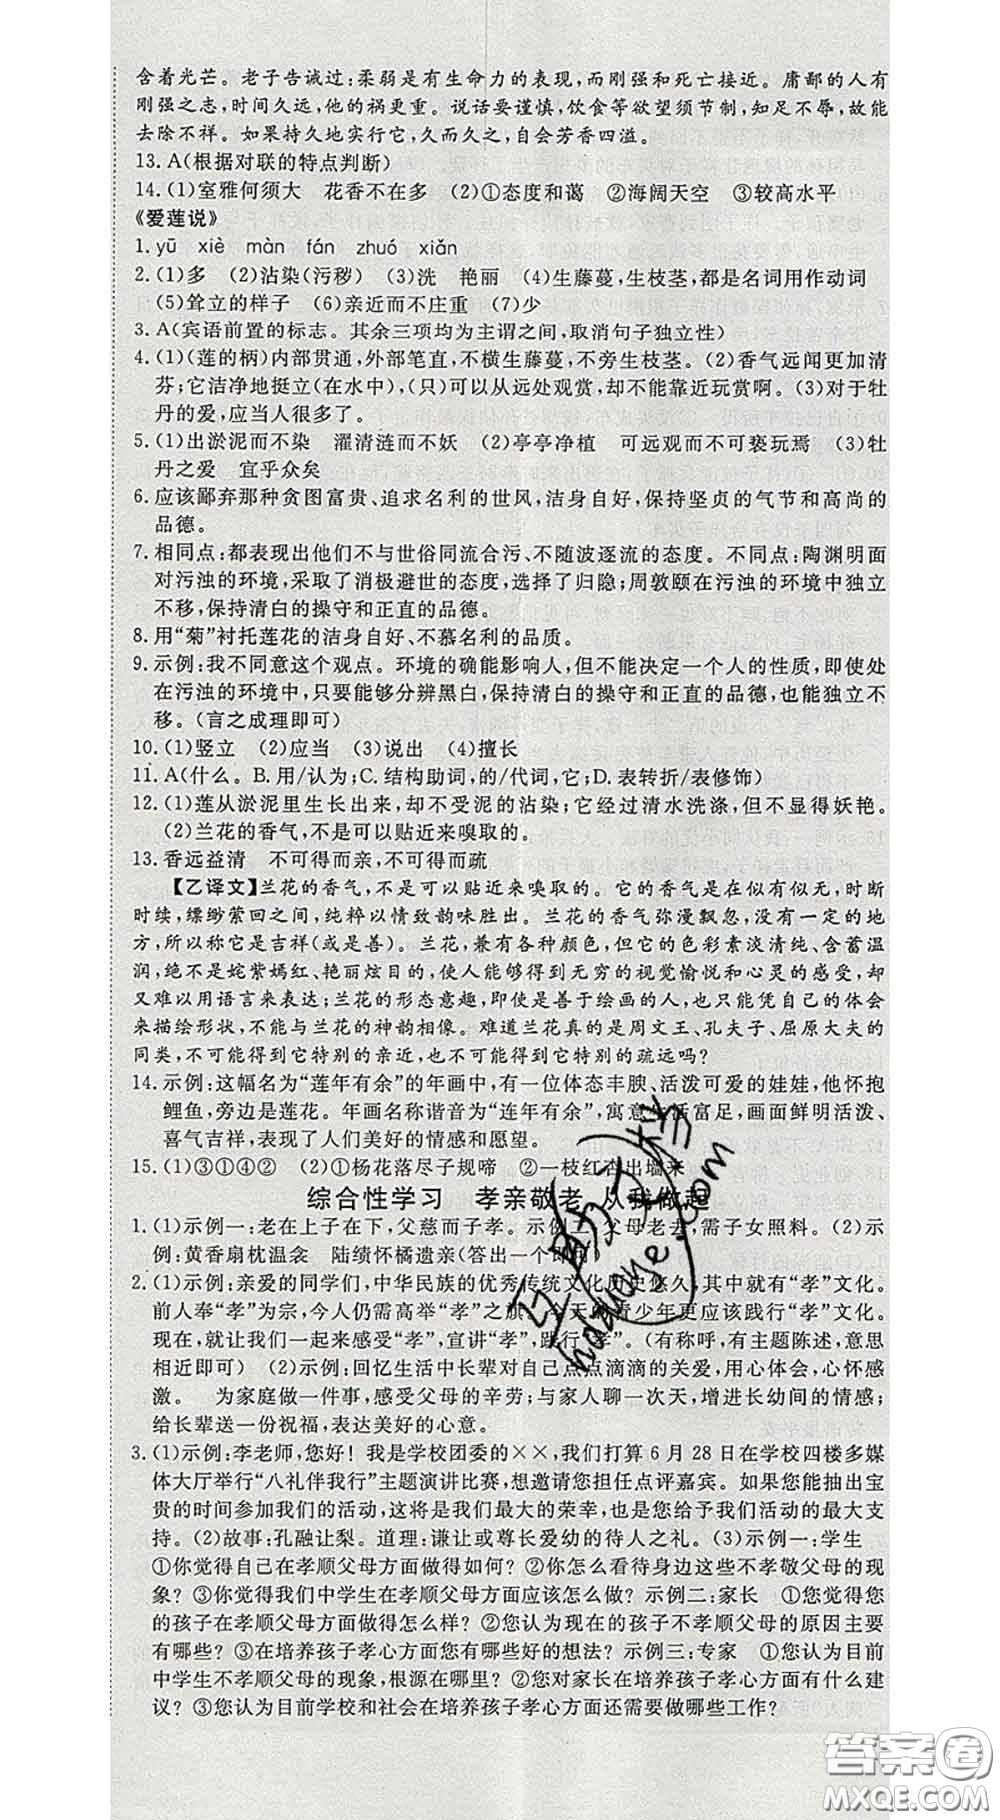 含着光芒。老子告诫过:柔弱是有生命力的表现,而刚强和死亡接近。庸鄙的人有
刚强之志,时间久远,他的祸更重。说话要谨慎,饮食等欲望须节制,知足不辱,故能
去除不祥。如果持久地实行它,久而久之,自会芳香四溢。
13. A(根据对联的特点判断)
14. (1)室雅何须大 花香不在多 (2)①态度和蔼 ②海阔天空 ③较高水平
《爱莲说》
1. yū xiè màn fán zhuó xiǎn
2. (1)多 (2)沾染(污秽) (3)洗 艳丽 (4)生藤蔓,生枝茎,都是名词用作动词
(5)耸立的样子 (6)亲近而不庄重 (7)少
3. A(宾语前置的标志。其余三项均为主谓之间,取消句子独立性)
4. (1)(莲的柄)内部贯通,外部笔直,不横生藤蔓,不旁生枝茎。(2)香气远闻更加清
芬;它洁净地挺立(在水中),(只)可以从远处观赏,却不能靠近玩赏啊。(3)对于牡
丹的爱,应当人很多了。
5. (1)出淤泥而不染 濯清涟而不妖 (2)亭亭净植 可远观而不可亵玩焉 (3)牡
丹之爱 宜乎众矣
6. 应该鄙弃那种贪图富贵、追求名利的世风,洁身自好,保持坚贞的气节和高尚的
品德。
7. 相同点:都表现出他们不与世俗同流合污、不随波逐流的态度。不同点:陶渊明面
对污浊的环境,采取了消极避世的态度,选择了归隐;周敦颐在污浊的环境中独立
不移,保持清白的操守和正直的品德。
8. 用“菊”衬托莲花的洁身自好、不慕名利的品质。
9. 示例:我不同意这个观点。环境的确能影响人,但不能决定一个人的性质,即使处
在污浊的环境中,只要能够分辨黑白,保持清白的操守和正直的品德,也能独立不
移。(言之成理即可)
10. (1)竖立 (2)应当 (3)说出 (4)擅长
11. A(什么。B. 用/认为;C. 结构助词,的/代词,它;D. 表转折/表修饰)
12. (1)莲从淤泥里生长出来,却不受泥的沾染;它经过清水洗涤,但不显得妖艳。
(2)兰花的香气,不是可以贴近来嗅取的。
13. 香远益清 不可得而亲,不可得而疏
【乙译文】兰花的香气,不是可以贴近来嗅取的。它的香气是在似有似无,时断
时续,缥缈萦回之间,纯粹以情致韵味胜出。兰花的香气弥漫飘忽,没有一定的地
方,所以称它是吉祥(或是善)。兰花,兼有各种颜色,但它的色彩素淡清纯、含蓄温
润,绝不是姹紫嫣红、艳丽炫目的,使人能够得到无穷的视觉愉悦和心灵的感受,却
又难以用语言来表达;兰花的形态意趣,即使是善于绘画的人,也只能凭自己的体会
来描绘形状,不能与兰花的神韵相像。难道兰花真的是周文王、孔夫子、屈原大夫的
同类,不可能得到它特别的亲近,也不可能得到它特别的疏远吗?
14. 示例:这幅名为“莲年有余”的年画中,有一位体态丰腴、活泼可爱的娃娃,他怀抱
鲤鱼,旁边是莲花。年画名称谐音为“连年有余”,寓意生活富足,画面鲜明活泼、
喜气吉祥,表现了人们美好的情感和愿望。
15. (1)③①④② (2)①杨花落尽子规啼 ②一枝红杏出墙来
综合性学习 孝亲敬老 从我做起
1. (1)示例一:老在上子在下,父慈而子孝。示例二:父母老去,需子女照料。(2)示
例:黄香扇枕温衾 陆绩怀橘遗亲(答出一个即可)
2. (1)示例:亲爱的同学们,中华民族的优秀传统文化历史悠久,其中就有“孝”文化。
前人奉“孝”为宗,今人仍需高举“孝”之旗。今天的青少年更应该践行“孝”文化。
现在,就让我们一起来感受“孝”,宣讲“孝”,践行“孝”。(有称呼,有主题陈述,意思
相近即可) (2)示例:回忆生活中长辈对自己点点滴滴的关爱,用心体会,心怀感
激。 为家庭做一件事,感受父母的辛劳;与家人聊一次天,增进长幼间的情感;
给长辈送一份祝福,表达美好的心意。
3. (1)示例:李老师,您好!我是学校团委的××,我们打算6月28日在学校四楼多媒
体大厅举行“八礼伴我行”主题演讲比赛,想邀请您担任点评嘉宾。如果您能抽出宝
贵的时间参加我们的活动,这将是我们最大的荣幸,也是您给予我们活动的最大支
持。(2)故事:孔融让梨。道理:谦让或尊长爱幼的待人之礼。(3)示例一:学生
①你觉得自己在孝顺父母方面做得如何?②你怎么看待身边这些不孝敬父母的现
象?③你觉得我们中学生在孝顺父母方面应该怎么做?示例二:家长 ①您觉得您
的孩子在孝顺父母方面做得怎么样?②您认为现在的孩子不孝顺父母的原因主要
有哪些?③在培养孩子孝心方面您有哪些好的想法?示例三:专家 ①您认为目前
中学生不孝顺父母的现象,根源在哪里?②您对家长在培养孩子孝心方面有什么建
议?③您认为目前学校和社会在培养孩子孝心方面还需要做哪些工作?
互助文档
hdwenge.com
答案圈
MXQE.COM